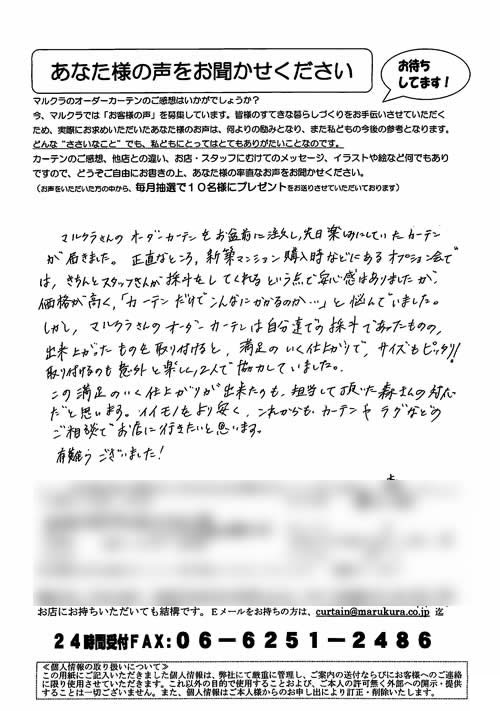 あなた様の声をお聞かせください
お待ち
してます!
マルクラのオーダーカーテンのご感想はいかがでしょうか?
今、マルクラでは「お客様の声」を募集しています。皆様のすてきな暮らしづくりをお手伝いさせていただく
ため、実際にお求めいただいたあなた様のお声は、何よりの励みとなり、また私どもの今後の参考となります。
どんな“ささいなこと”でも、私どもにとってはとてもありがたいことなのです。
カーテンのご感想、他店との違い、お店・スタッフにむけてのメッセージ、イラストや絵など何でもあり
ですので、どうぞご自由にお書きの上、あなた様の率直なお声をお聞かせください。
(お声をいただいた方の中から、毎月抽選で10名様にプレゼントをお送りさせていただいております)
マルクラさんのオーダーカーテンをお盆前に注文し、先日楽しみにしていたカーテン
が届きました。正直なところ、新築マンション購入時などにあるオプション会で
は、きちんとスタッフさんが採寸をしてくれるという点で安心感はありましたが、
価格が高く、「カーテンだけでこんなにかかるのか…」と悩んでいました。
しかし、マルクラさんのオーダーカーテンは自分達での採寸であったものの、
出来上がったものを取り付けると、満足のいく仕上がりで、サイズもピッタリ!
取り付けるのも意外と楽しく、2人で協力していました。
この満足のいく仕上がりが出来たのも、担当して頂いた森さんの対応
だと思います。イイモノをより安く、これからもカーテンやラグなどの
ご相談でお店に行きたいと思います。
有難うございました!
上
お店にお持ちいただいても結構です。Eメールをお持ちの方は、curtain@marukura.co.jp 迄
24時間受付FAX:06-6251-2486
≪個人情報の取り扱いについて≫
この用紙にご記入いただきました個人情報は、弊社にて厳重に管理し、ご案内の送付ならびにお客様へのご連絡
に限り使用させていただきます。これ以外の目的で使用することおよび、ご本人の許可無く外部への開示・提供
することは一切ございません。また、個人情報はご本人様からのお申し出により訂正・削除いたします。